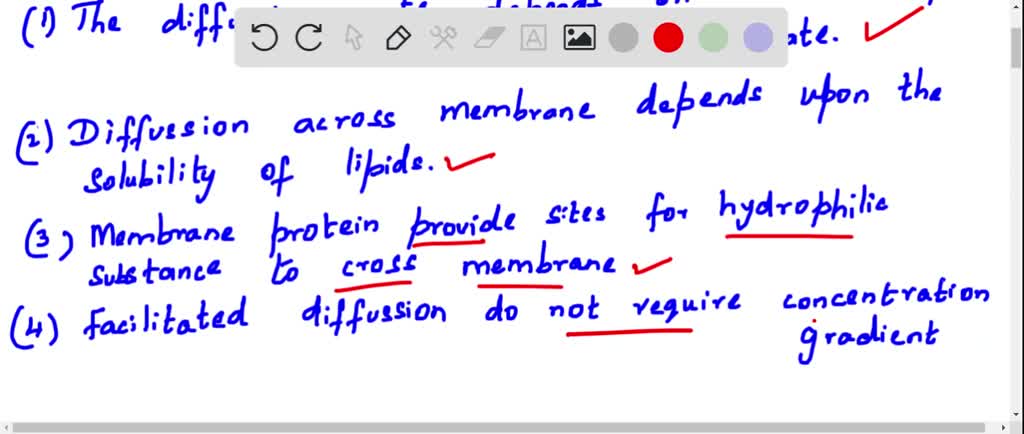 (1) The
ate.
(2) Diffussion across membrane depends upon the
solubility of lipids.
(3) Membrane protein provide sites for hydrophilic
substance to cross membrane
(4) Facilitated diffussion do not require concentration
gradient